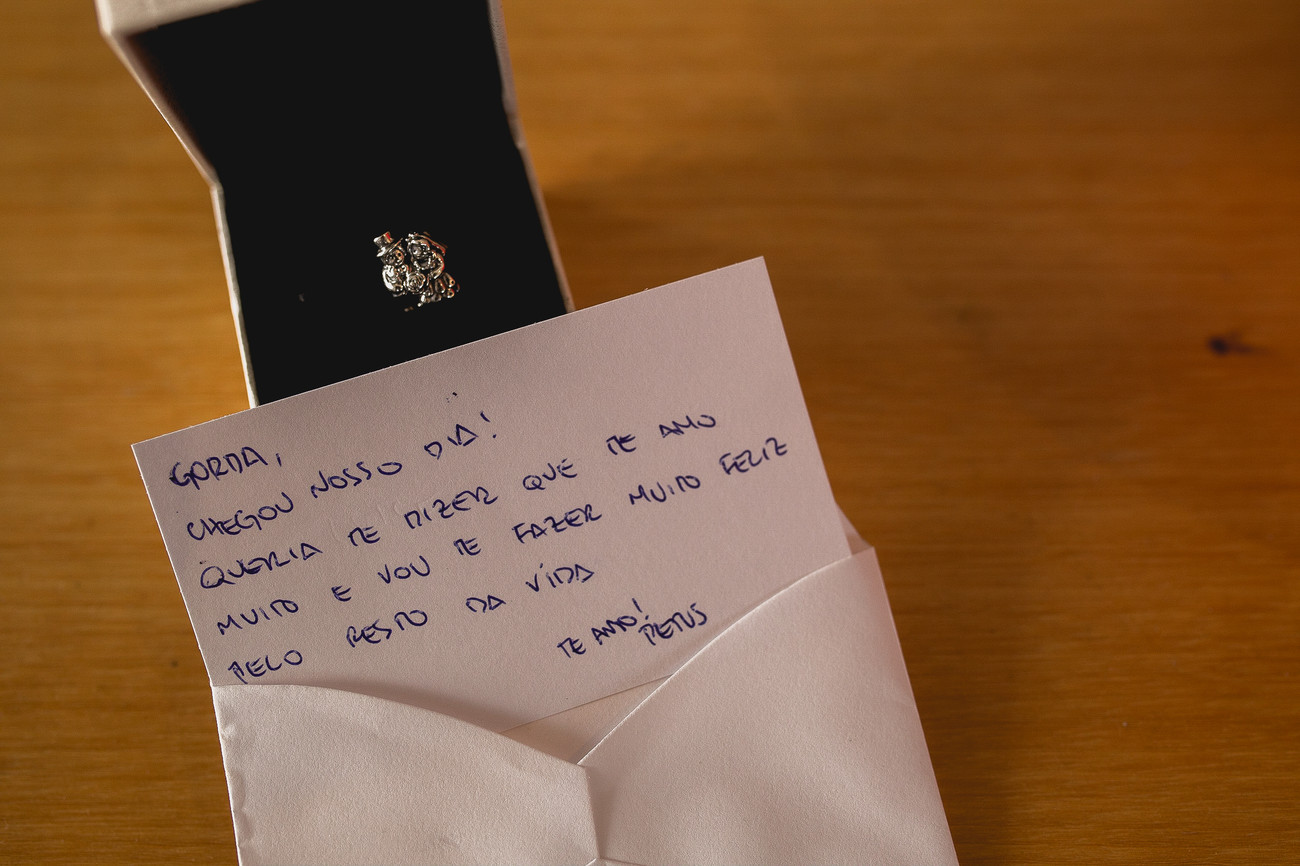 GORDA,
CHEGOU NOSSO DIA!
QUERIA TE DIZER QUE TE AMO
MUITO E VOU TE FAZER MUITO FELIZ
PELO RESTO DA VIDA
TE AMO!
PETUS